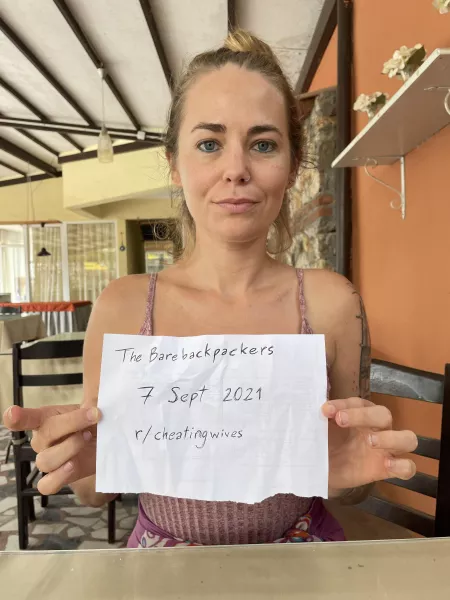 The Barebackpackers
7 Sept 2021
r/cheatingwives